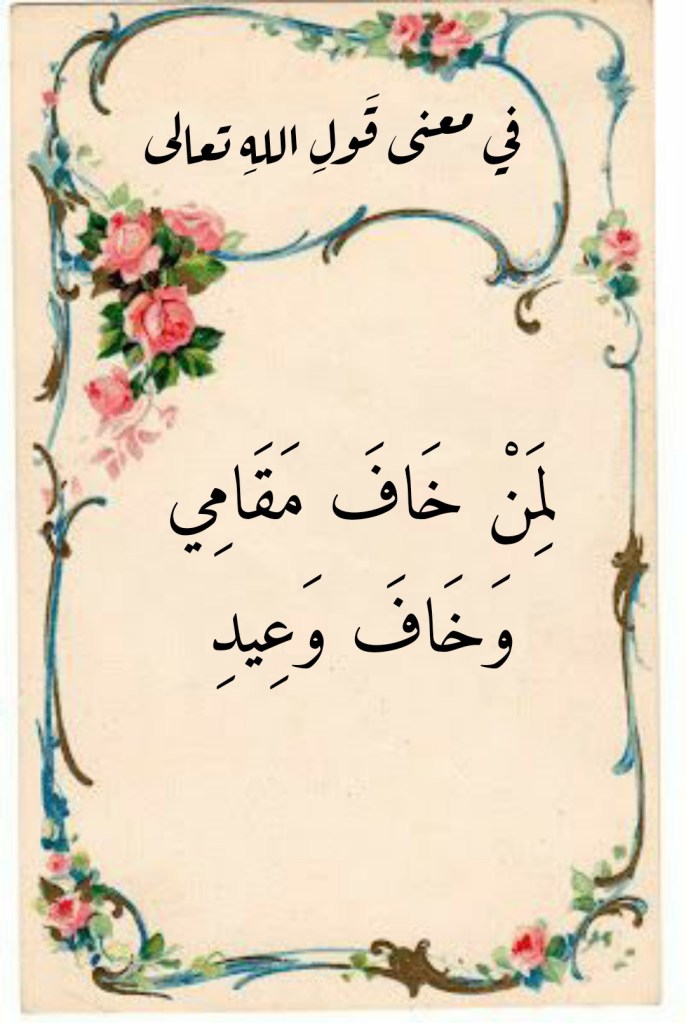 في معنى قَولِ اللهِ تعالى
لِمَنْ خَافَ مَقَامِي
وَخَافَ وَعِيدِ